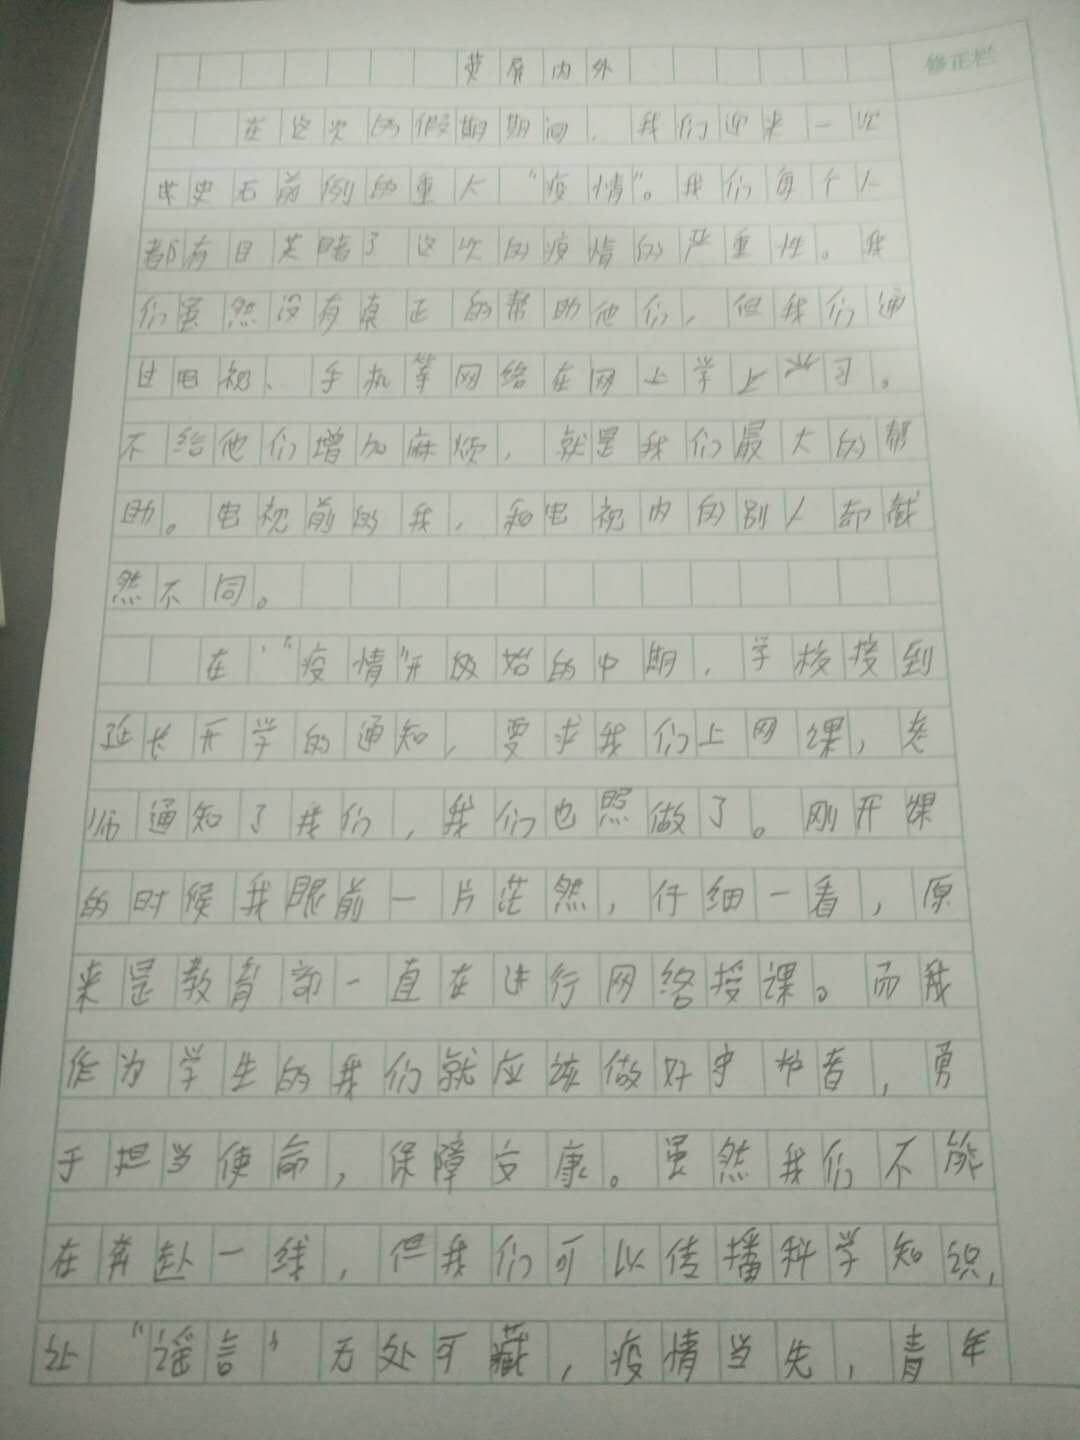 荧屏内外
修正栏
在这次的假期期间，我们迎来一次
史无前例的重大“疫情”。我们每个人
都有目共睹了这次的疫情的严重性。我
们虽然没有真正的帮助他们，但我们通
过电视、手机等网络在网上学上学习。
不给他们增加麻烦，就是我们最大的帮
助。电视前的我，和电视内的别人却截
然不同。
在“疫情”开始的中期，学校接到
延长开学的通知，要求我们上网课，老
师通知了我们，我们也照做了。刚开课
的时候我眼前一片茫然，仔细一看，原
来是教育部一直在进行网络授课。而我
作为学生的我们就应该做好守护者，勇
于担当使命，保障安康。虽然我们不能
在奔赴一线，但我们可以传播科学知识，
让“谣言”无处可藏，疫情当先，青年